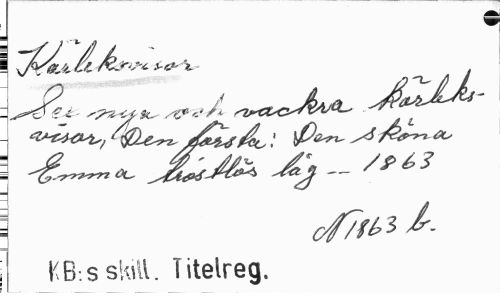 Kärleksvisor
Sex nya och vackra kärleks-
visor, Den första: Den sköna
Emma tröstlös låg -- 1863
N 1863 b.
KB:s skill. Titelreg.